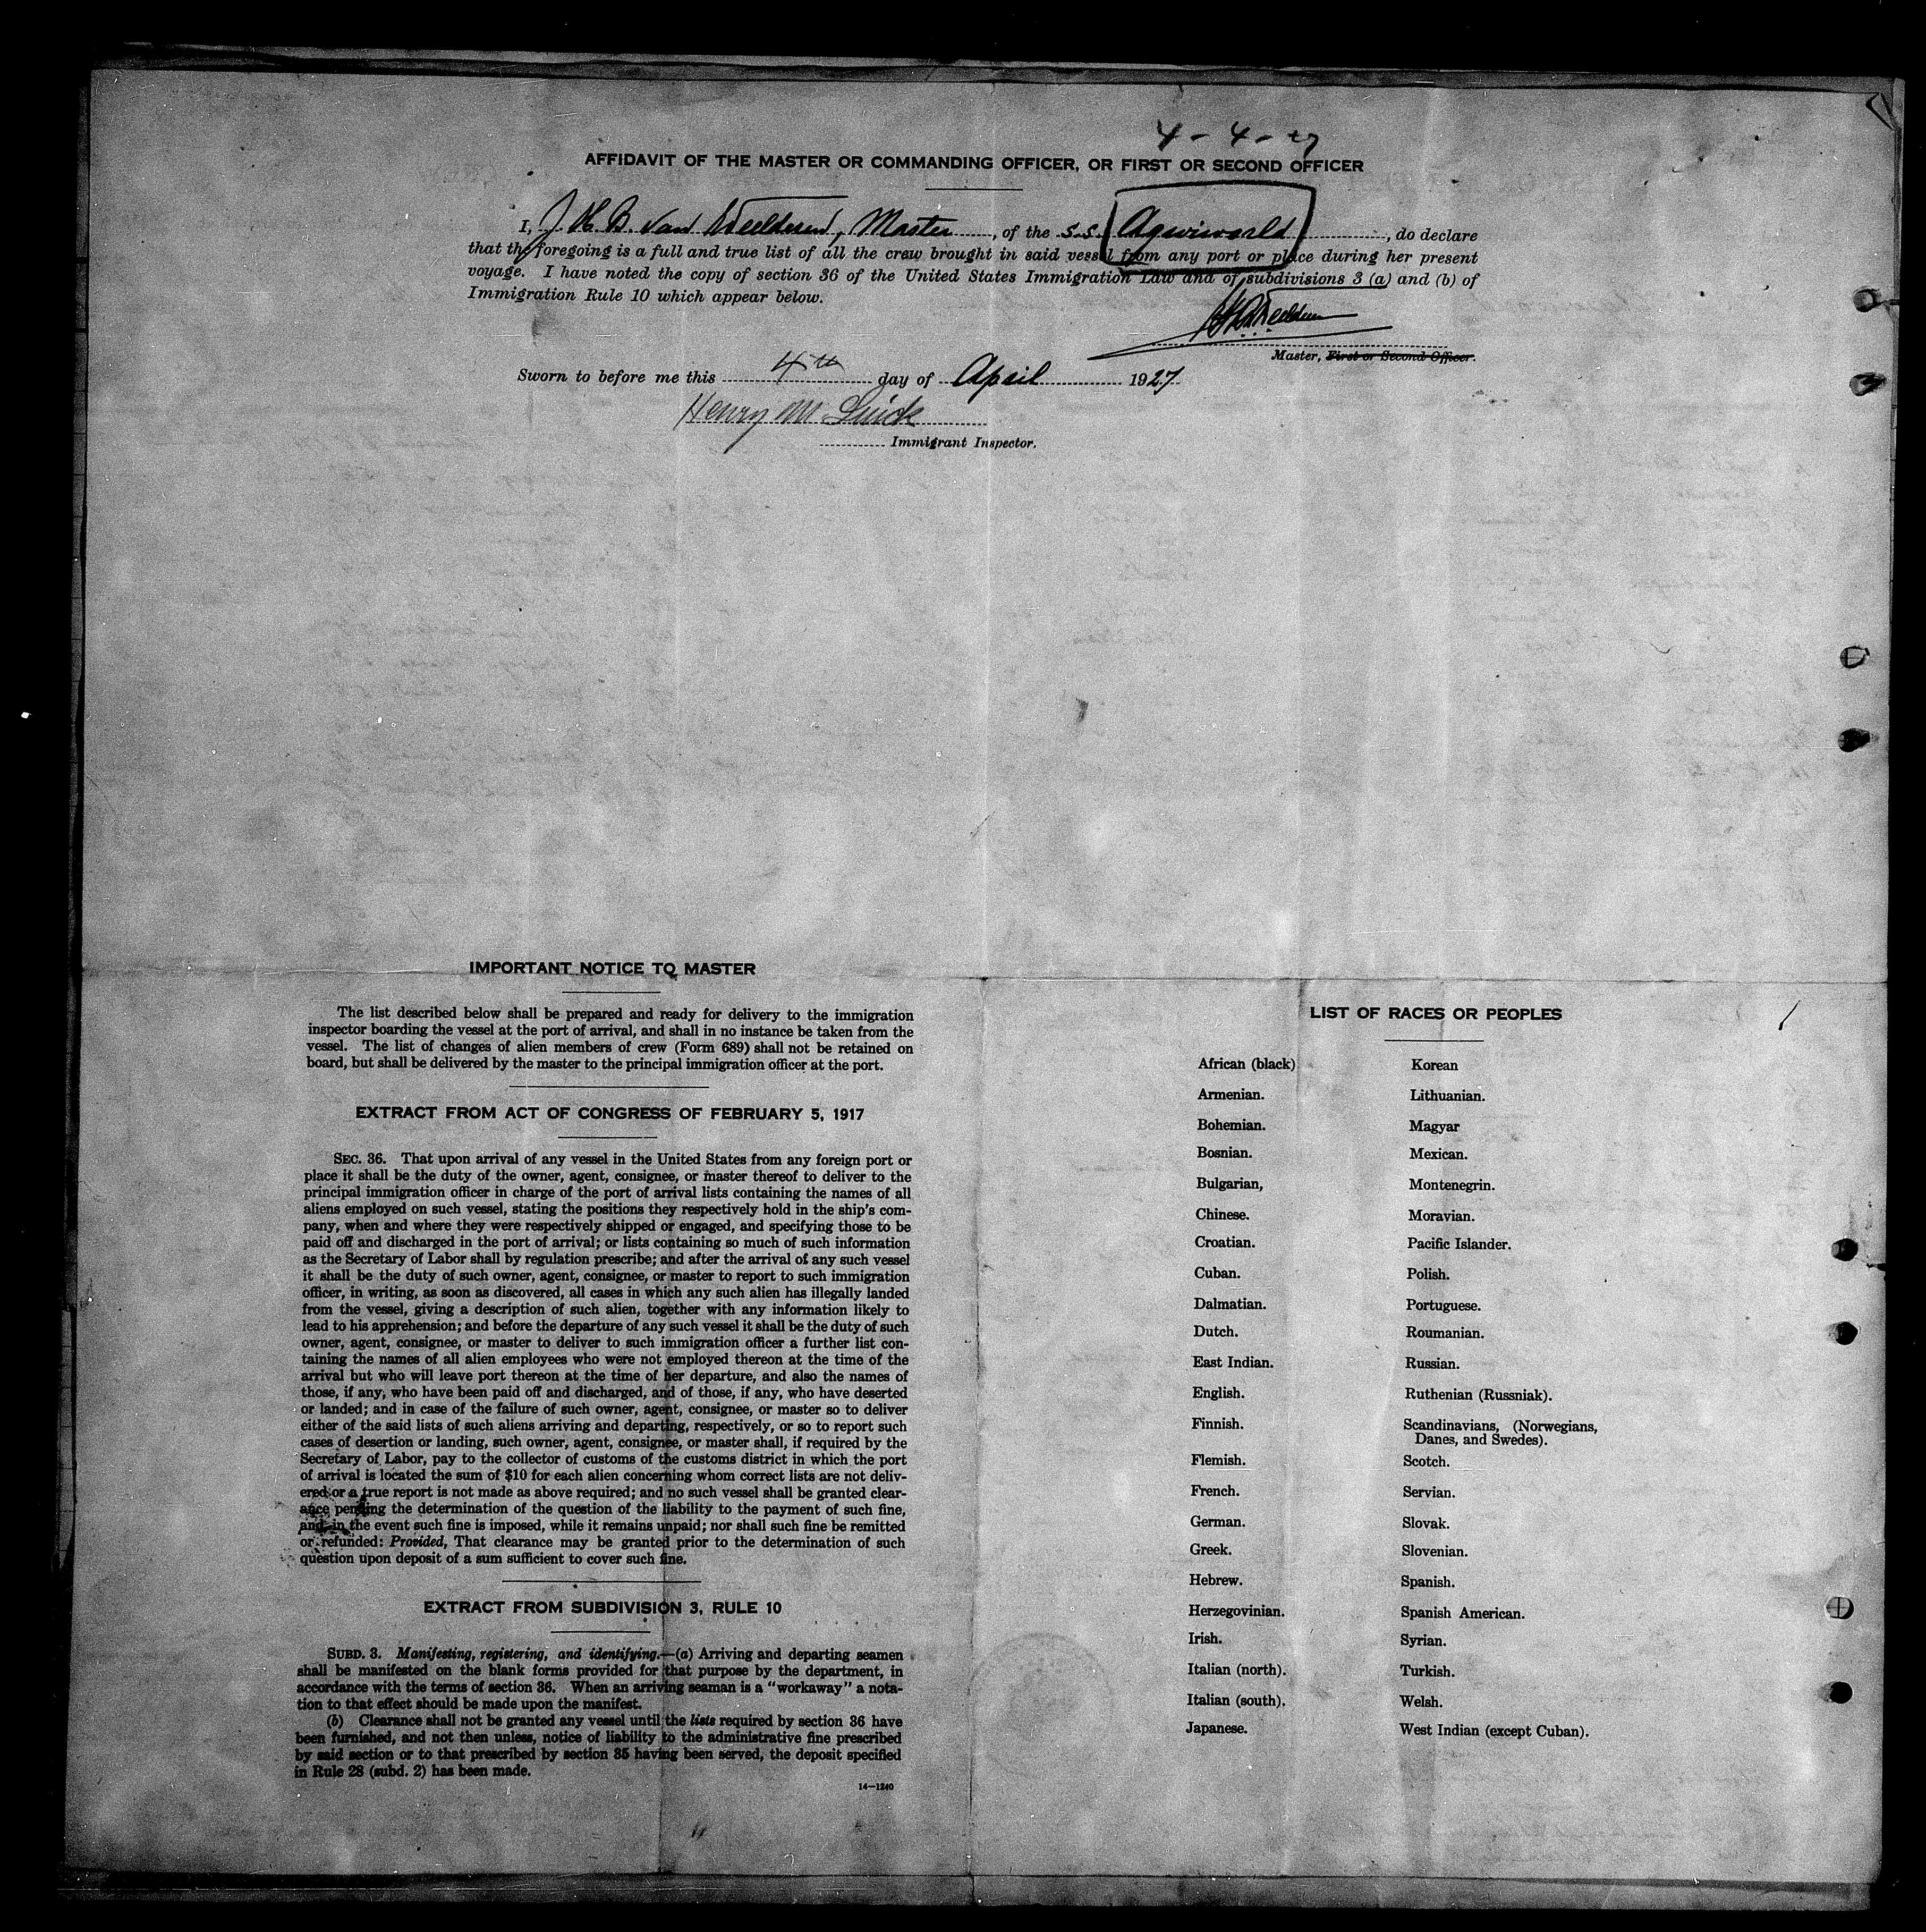 4-4-27
AFFIDAVIT OF THE MASTER OR COMMANDING OFFICER, OR FIRST OR SECOND OFFICER
I, J. H. B. van Weelderen, Master, of the s.s. Agwiworld, do declare
that the foregoing is a full and true list of all the crew brought in said vessel from any port or place during her present
voyage. I have noted the copy of section 36 of the United States Immigration Law and of subdivisions 3 (a) and (b) of
Immigration Rule 10 which appear below.
Master, First or Second Officer.
Sworn to before me this 4th day of April 1927
Henry M
Immigrant Inspector.
IMPORTANT NOTICE TO MASTER
The list described below shall be prepared and ready for delivery to the immigration
inspector boarding the vessel at the port of arrival, and shall in no instance be taken from the
vessel. The list of changes of alien members of crew (Form 689) shall not be retained on
board, but shall be delivered by the master to the principal immigration officer at the port.
EXTRACT FROM ACT OF CONGRESS OF FEBRUARY 5, 1917
SEC. 36. That upon arrival of any vessel in the United States from any foreign port or
place it shall be the duty of the owner, agent, consignee, or master thereof to deliver to the
principal immigration officer in charge of the port of arrival lists containing the names of all
aliens employed on such vessel, stating the positions they respectively hold in the ship's com-
pany, when and where they were respectively shipped or engaged, and specifying those to be
paid off and discharged in the port of arrival; or lists containing so much of such information
as the Secretary of Labor shall by regulation prescribe; and after the arrival of any such vessel
it shall be the duty of such owner, agent, consignee, or master to report to such immigration
officer, in writing, as soon as discovered, all cases in which any such alien has illegally landed
from the vessel, giving a description of such alien, together with any information likely to
lead to his apprehension; and before the departure of any such vessel it shall be the duty of such
owner, agent, consignee, or master to deliver to such immigration officer a further list con-
taining the names of all alien employees who were not employed thereon at the time of the
arrival but who will leave port thereon at the time of her departure, and also the names of
those, if any, who have been paid off and discharged, and of those, if any, who have deserted
or landed; and in case of the failure of such owner, agent, consignee, or master so to deliver
either of the said lists of such aliens arriving and departing, respectively, or so to report such
cases of desertion or landing, such owner, agent, consignee, or master shall, if required by the
Secretary of Labor, pay to the collector of customs of the customs district in which the port
of arrival is located the sum of $10 for each alien concerning whom correct lists are not deliv-
ered or a true report is not made as above required; and no such vessel shall be granted clear-
ance pending the determination of the question of the liability to the payment of such fine,
and in the event such fine is imposed, while it remains unpaid; nor shall such fine be remitted
or refunded: Provided, That clearance may be granted prior to the determination of such
question upon deposit of a sum sufficient to cover such fine.
EXTRACT FROM SUBDIVISION 3, RULE 10
SUBD. 3. Manifesting, registering, and identifying.—(a) Arriving and departing seamen
shall be manifested on the blank forms provided for that purpose by the department, in
accordance with the terms of section 36. When an arriving seaman is a "workaway" a nota-
tion to that effect should be made upon the manifest.
(b) Clearance shall not be granted any vessel until the lists required by section 36 have
been furnished, and not then unless, notice of liability to the administrative fine prescribed
by said section or to that prescribed by section 35 having been served, the deposit specified
in Rule 28 (subd. 2) has been made.
14—1240
LIST OF RACES OR PEOPLES
African (black) Korean
Armenian. Lithuanian.
Bohemian. Magyar
Bosnian. Mexican.
Bulgarian, Montenegrin.
Chinese. Moravian.
Croatian. Pacific Islander.
Cuban. Polish.
Dalmatian. Portuguese.
Dutch. Roumanian.
East Indian. Russian.
English. Ruthenian (Russniak).
Finnish. Scandinavians, (Norwegians,
Danes, and Swedes).
Flemish. Scotch.
French. Servian.
German. Slovak.
Greek. Slovenian.
Hebrew. Spanish.
Herzegovinian. Spanish American.
Irish. Syrian.
Italian (north). Turkish.
Italian (south). Welsh.
Japanese. West Indian (except Cuban).